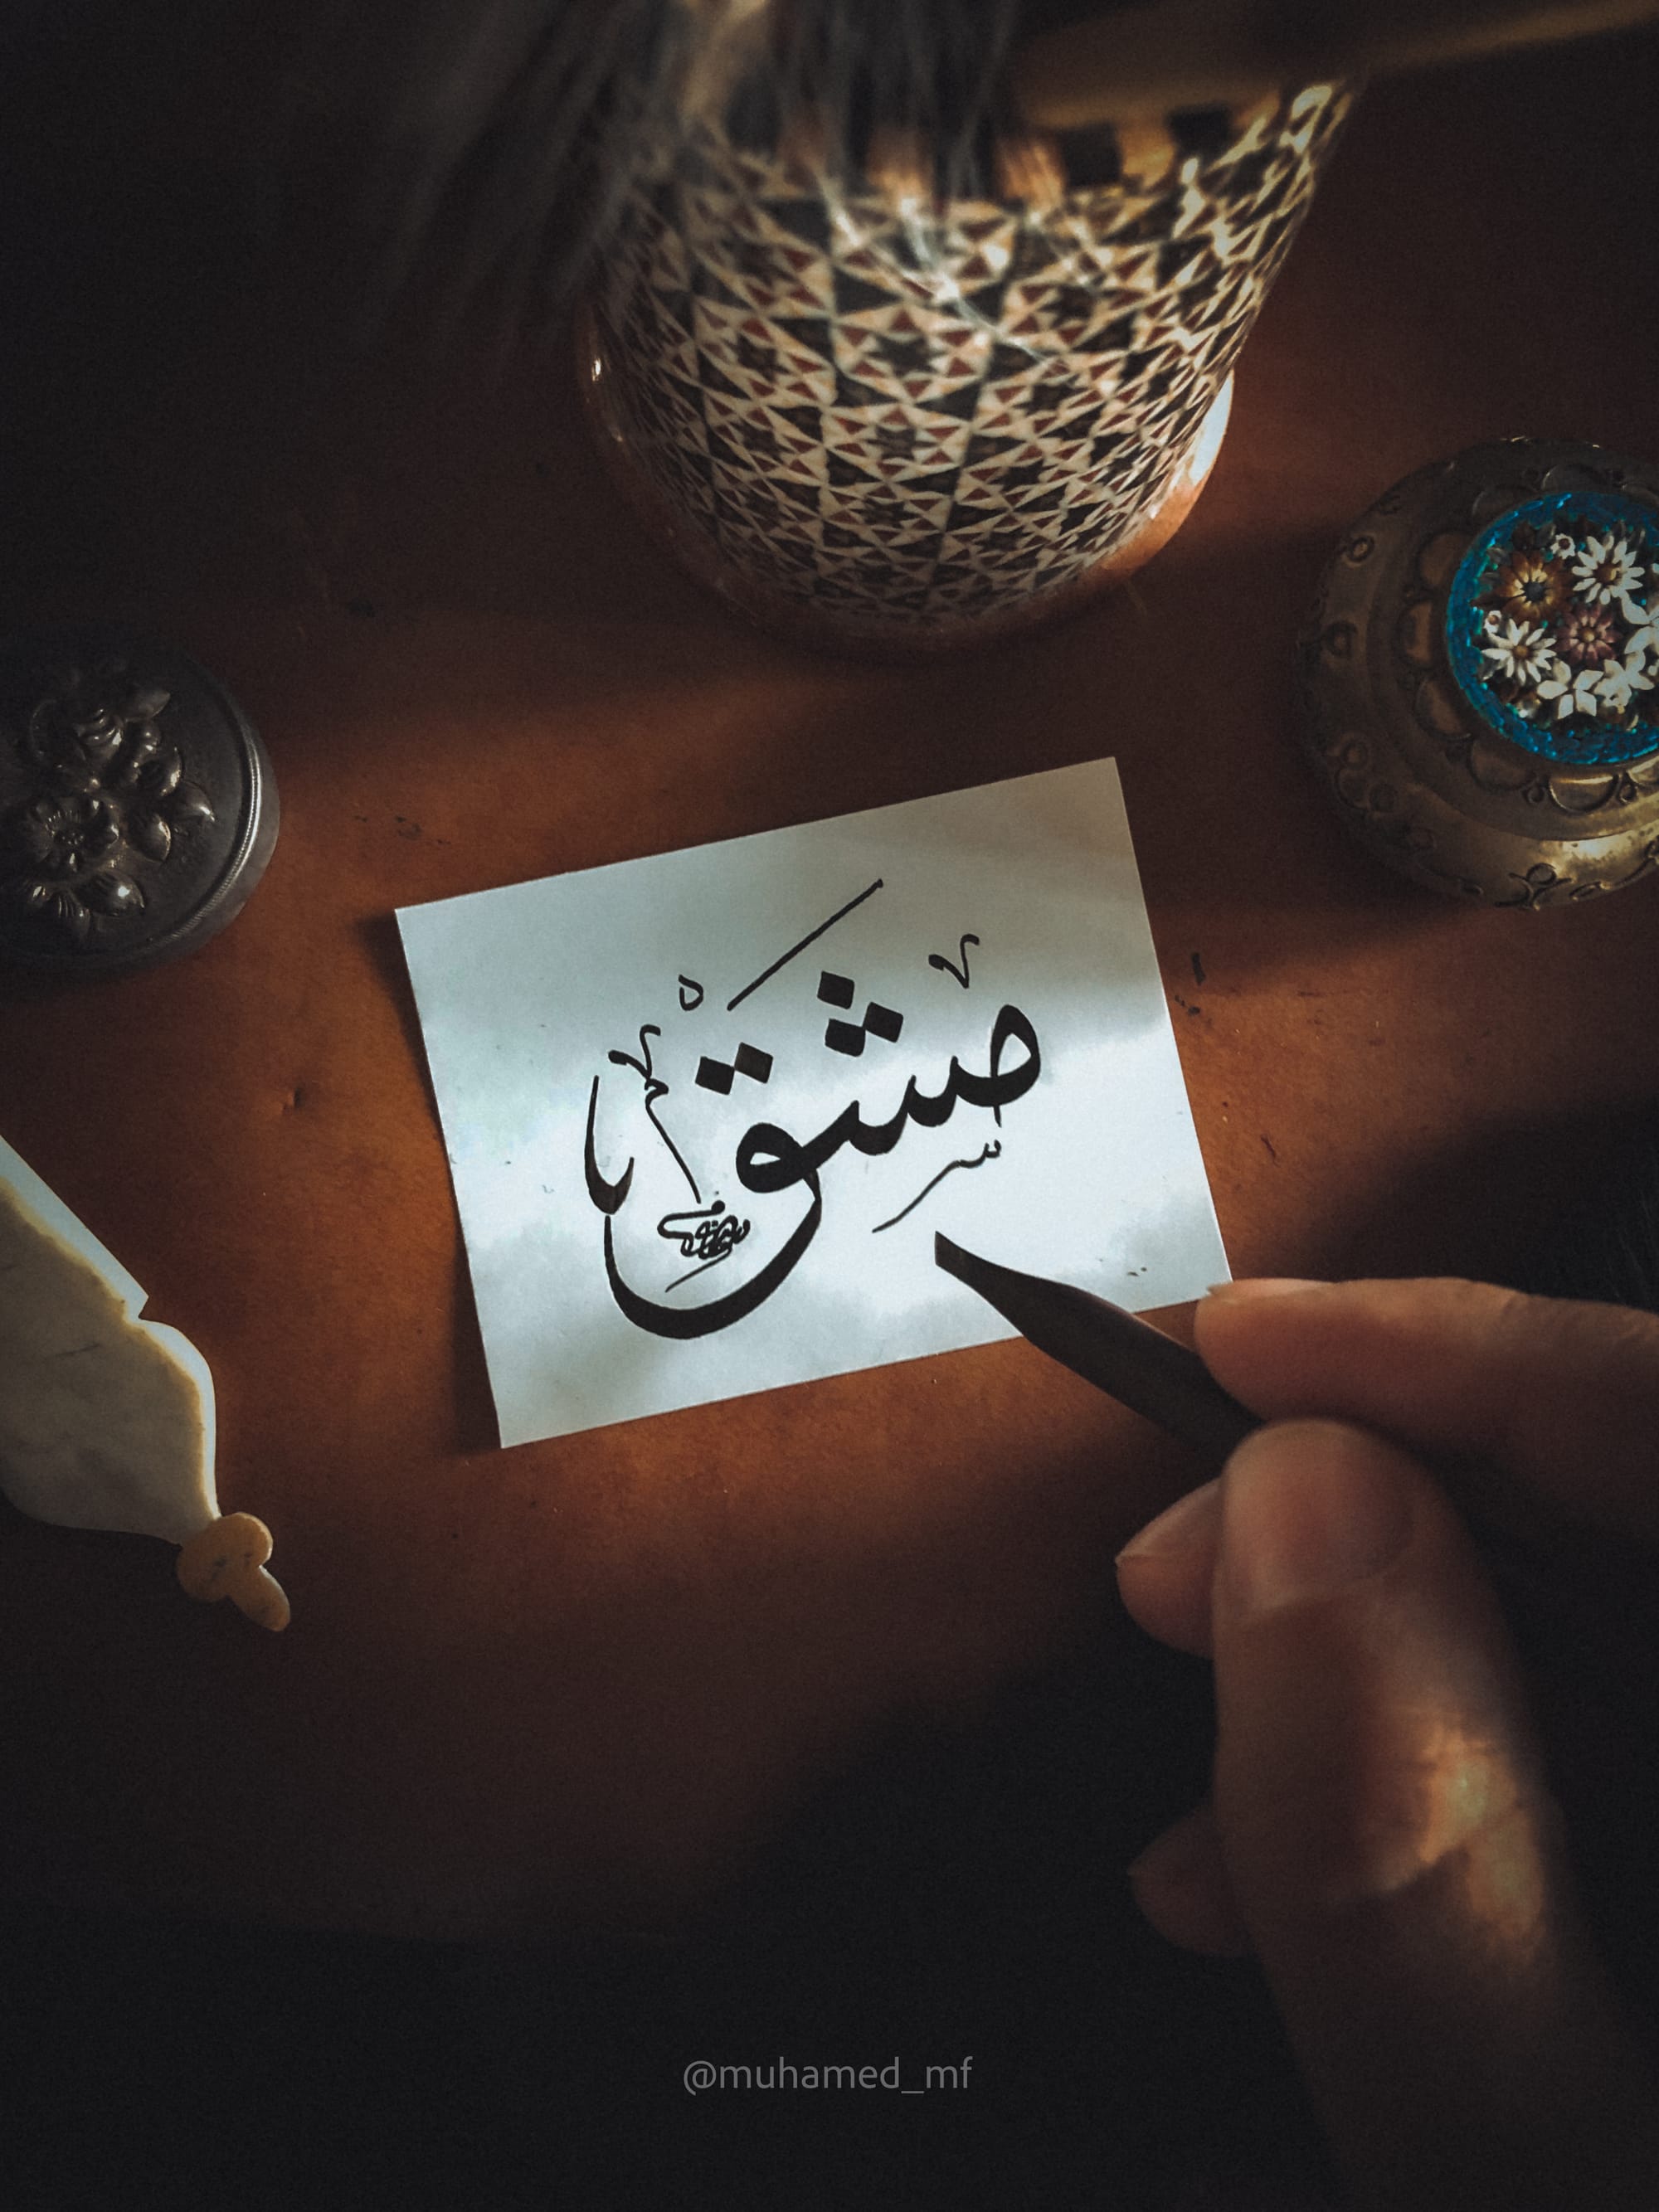 دمشق
@muhamed_mf